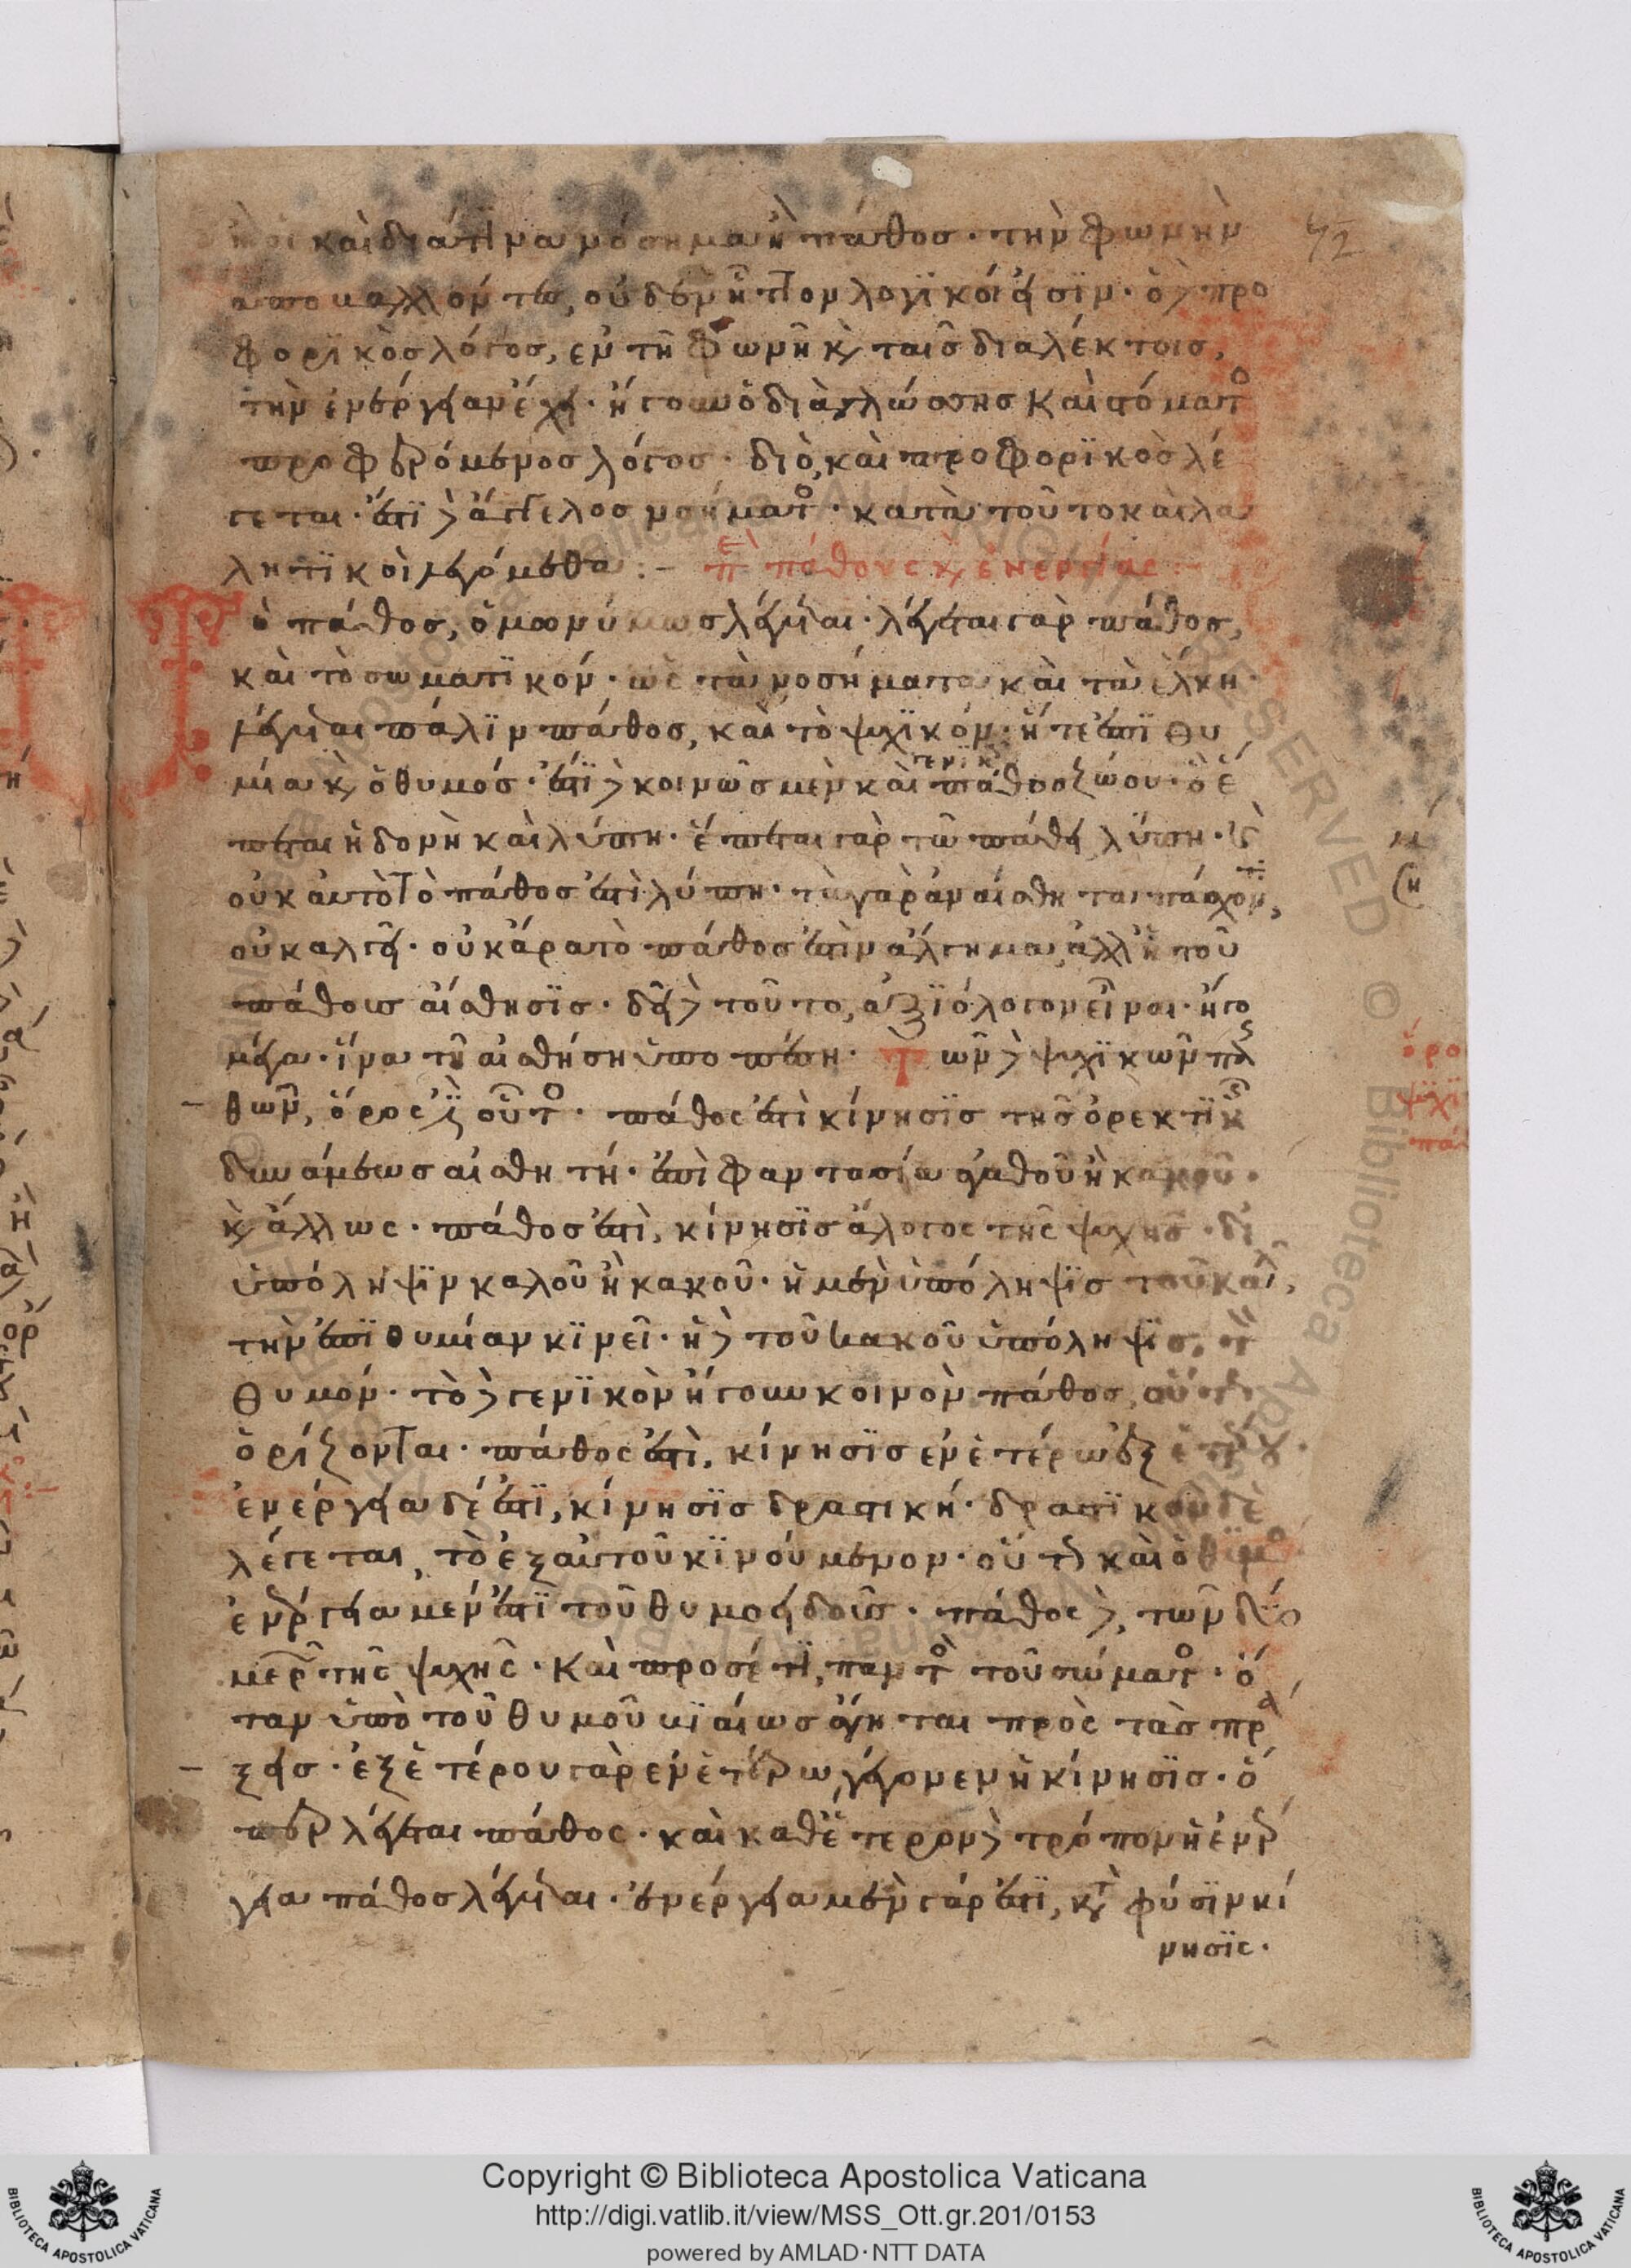 καὶ διά τινα νόσημα ἢ πάθος· τὴν φωνὴν
ἀποβαλλόντες, οὐδὲν ἧττον λογϊκοί εἰσϊν· ὁ δὲ προ
φορϊκὸσ λόγοσ, ἐν τῆ φωνῆ κ ταῖσ διαλέκτοισ,
τὴν ἐνέργειαν ἔχει· ἤγουν ὁ διὰ γλώσσησ καὶ στόματο
προφερόμενοσ λόγοσ· διὸ καὶ προφορϊκὸσ λέ
γεται· ἔστϊ δὲ ἄγγελοσ νοήματο· κατὰ τοῦτο καὶ λα
λητϊκοὶ λεγόμεθα :-  πε πάθους κ ἐνεργείας :-
Τὸ πάθοσ, ὁμωνύμωσ λέγεται· λέγεται γὰρ πάθοσ,
καὶ τὸ σωματϊκόν· ὡς τὰ νοσήματα καὶ τὰ ἕλκη·
λέγεται πάλϊν πάθοσ, καὶ τὸ ψυχϊκόν· ἥ τε ἐπϊθυ
μία κ ὁ θυμόσ· ἔστϊ δὲ κοινῶσ μὲν καὶ γενϊκ πάθοσ ζώου· ὧ ἕ
πεται ἡδονὴ καὶ λύπη· ἕπεται γὰρ τῶ πάθει λύπη· κ
οὐκ αὐτὸ τὸ πάθοσ ἐστὶ λύπη· τὰ γὰρ ἀναίσθητα πάσχοντ,
οὐκ ἀλγεῖ· οὐκ ἄρα τὸ πάθοσ ἐστὶν ἄλγημα, ἀλλ ἡ τοῦ
πάθουσ αἴσθησϊσ· δεῖ δὲ τοῦτο, ἀξϊόλογον εἶναι· ἤγουν
μέγα· ἵνα τῆ αἰσθήση ὑποπέση· Τῶν δὲ ψυχϊκῶν πα
θῶν, ὅρος ἐστὶ οὗτο· πάθος ἐστὶ κίνησϊσ τῆσ ὀρεκτϊκ
δυνάμεωσ αἰσθητή· ἐπὶ φαντασία ἀγαθοῦ ἢ κακοῦ·
κ ἄλλως· πάθοσ ἐστὶ, κίνησϊσ ἄλογος τῆς ψυχῆσ· δι
ὑπόληψϊν καλοῦ ἢ κακοῦ· ἡ μὲν ὑπόληψϊσ τοῦ καλ,
τὴν ἐπϊθυμίαν κϊνεῖ· ἡ δὲ τοῦ κακοῦ ὑπόληψϊσ, τ
θυμόν· τὸ δὲ γενϊκὸν ἤγουν κοινὸν πάθοσ, οὕτως
ὁρίζονται· πάθος ἐστὶ, κίνησϊσ ἐν ἑτέρω ἐξ ἑτέρου·
ἐνέργεια δέ ἐστϊ, κίνησϊσ δραστική· δραστϊκὸν δὲ
λέγεται, τὸ ἐξ αὑτοῦ κϊνούμενον· οὕτω καὶ ὁ θϋμὸ
ἐνέργεια μέν ἐστϊ τοῦ θυμοειδοῦσ· πάθος δὲ, τῶν δύο
μερ τῆς ψυχῆς· καὶ προσέτι, παντὸ τοῦ σώματο· ὅ
ταν ὑπὸ τοῦ θυμοῦ βϊαίωσ ἄγηται πρὸς τὰσ πρά
ξεισ· ἐξ ἑτέρου γὰρ ἐν ἑτέρω γέγονεν ἡ κίνησϊσ· ὅ
περ λέγεται πάθος· καὶ καθ ἕτερον δὲ τρόπον ἡ ἐνέρ
γεια πάθοσ λέγεται· ἐνέργεια μὲν γάρ ἐστϊ, κτ φύσϊν κί
νησϊς·
ὁρο
ψϋχϊ
πά
Copyright © Biblioteca Apostolica Vaticana
http://digi.vatlib.it/view/MSS_Ott.gr.201/0153
powered by AMLAD·NTT DATA